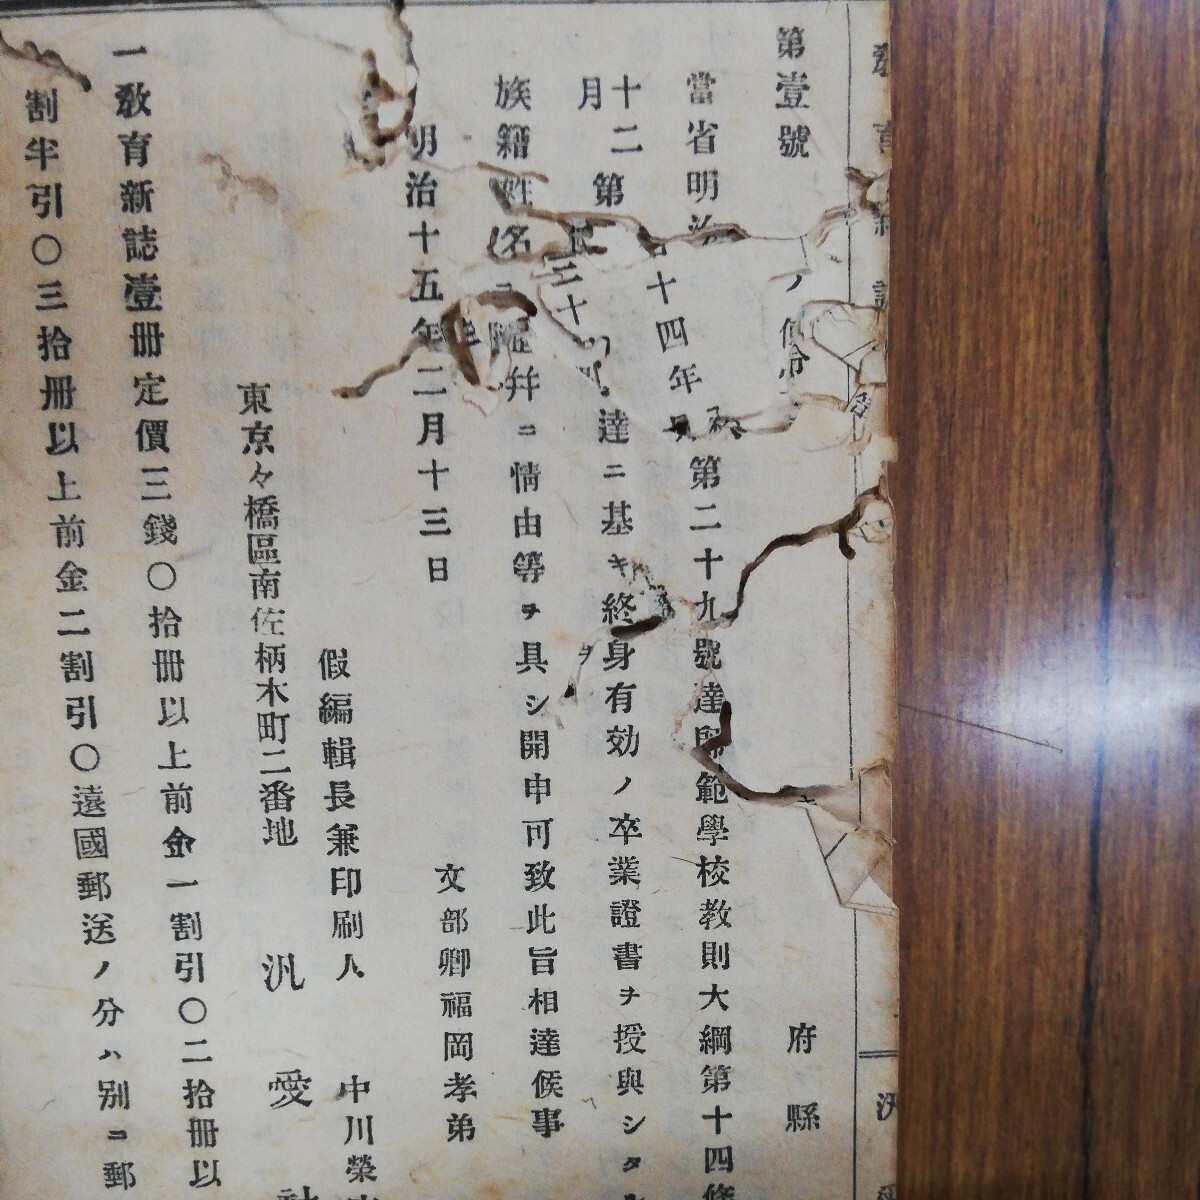 第壹號
府縣
當省明治十四年 第二十九號達師範學校教則大綱第十四條
十二月第 三十 達ニ基キ終身有効ノ卒業證書ヲ授與シタル
族籍姓名 幷ニ情由等ヲ具シ開申可致此旨相達候事
明治十五年二月十三日
文部卿福岡孝弟
假編輯長兼印刷人 中川榮
東京々橋區南佐柄木町二番地 汎愛社
一敎育新誌壹册定價三錢〇拾册以上前金一割引〇二拾册以
割半引〇三拾册以上前金二割引〇遠國郵送ノ分ハ別ニ郵